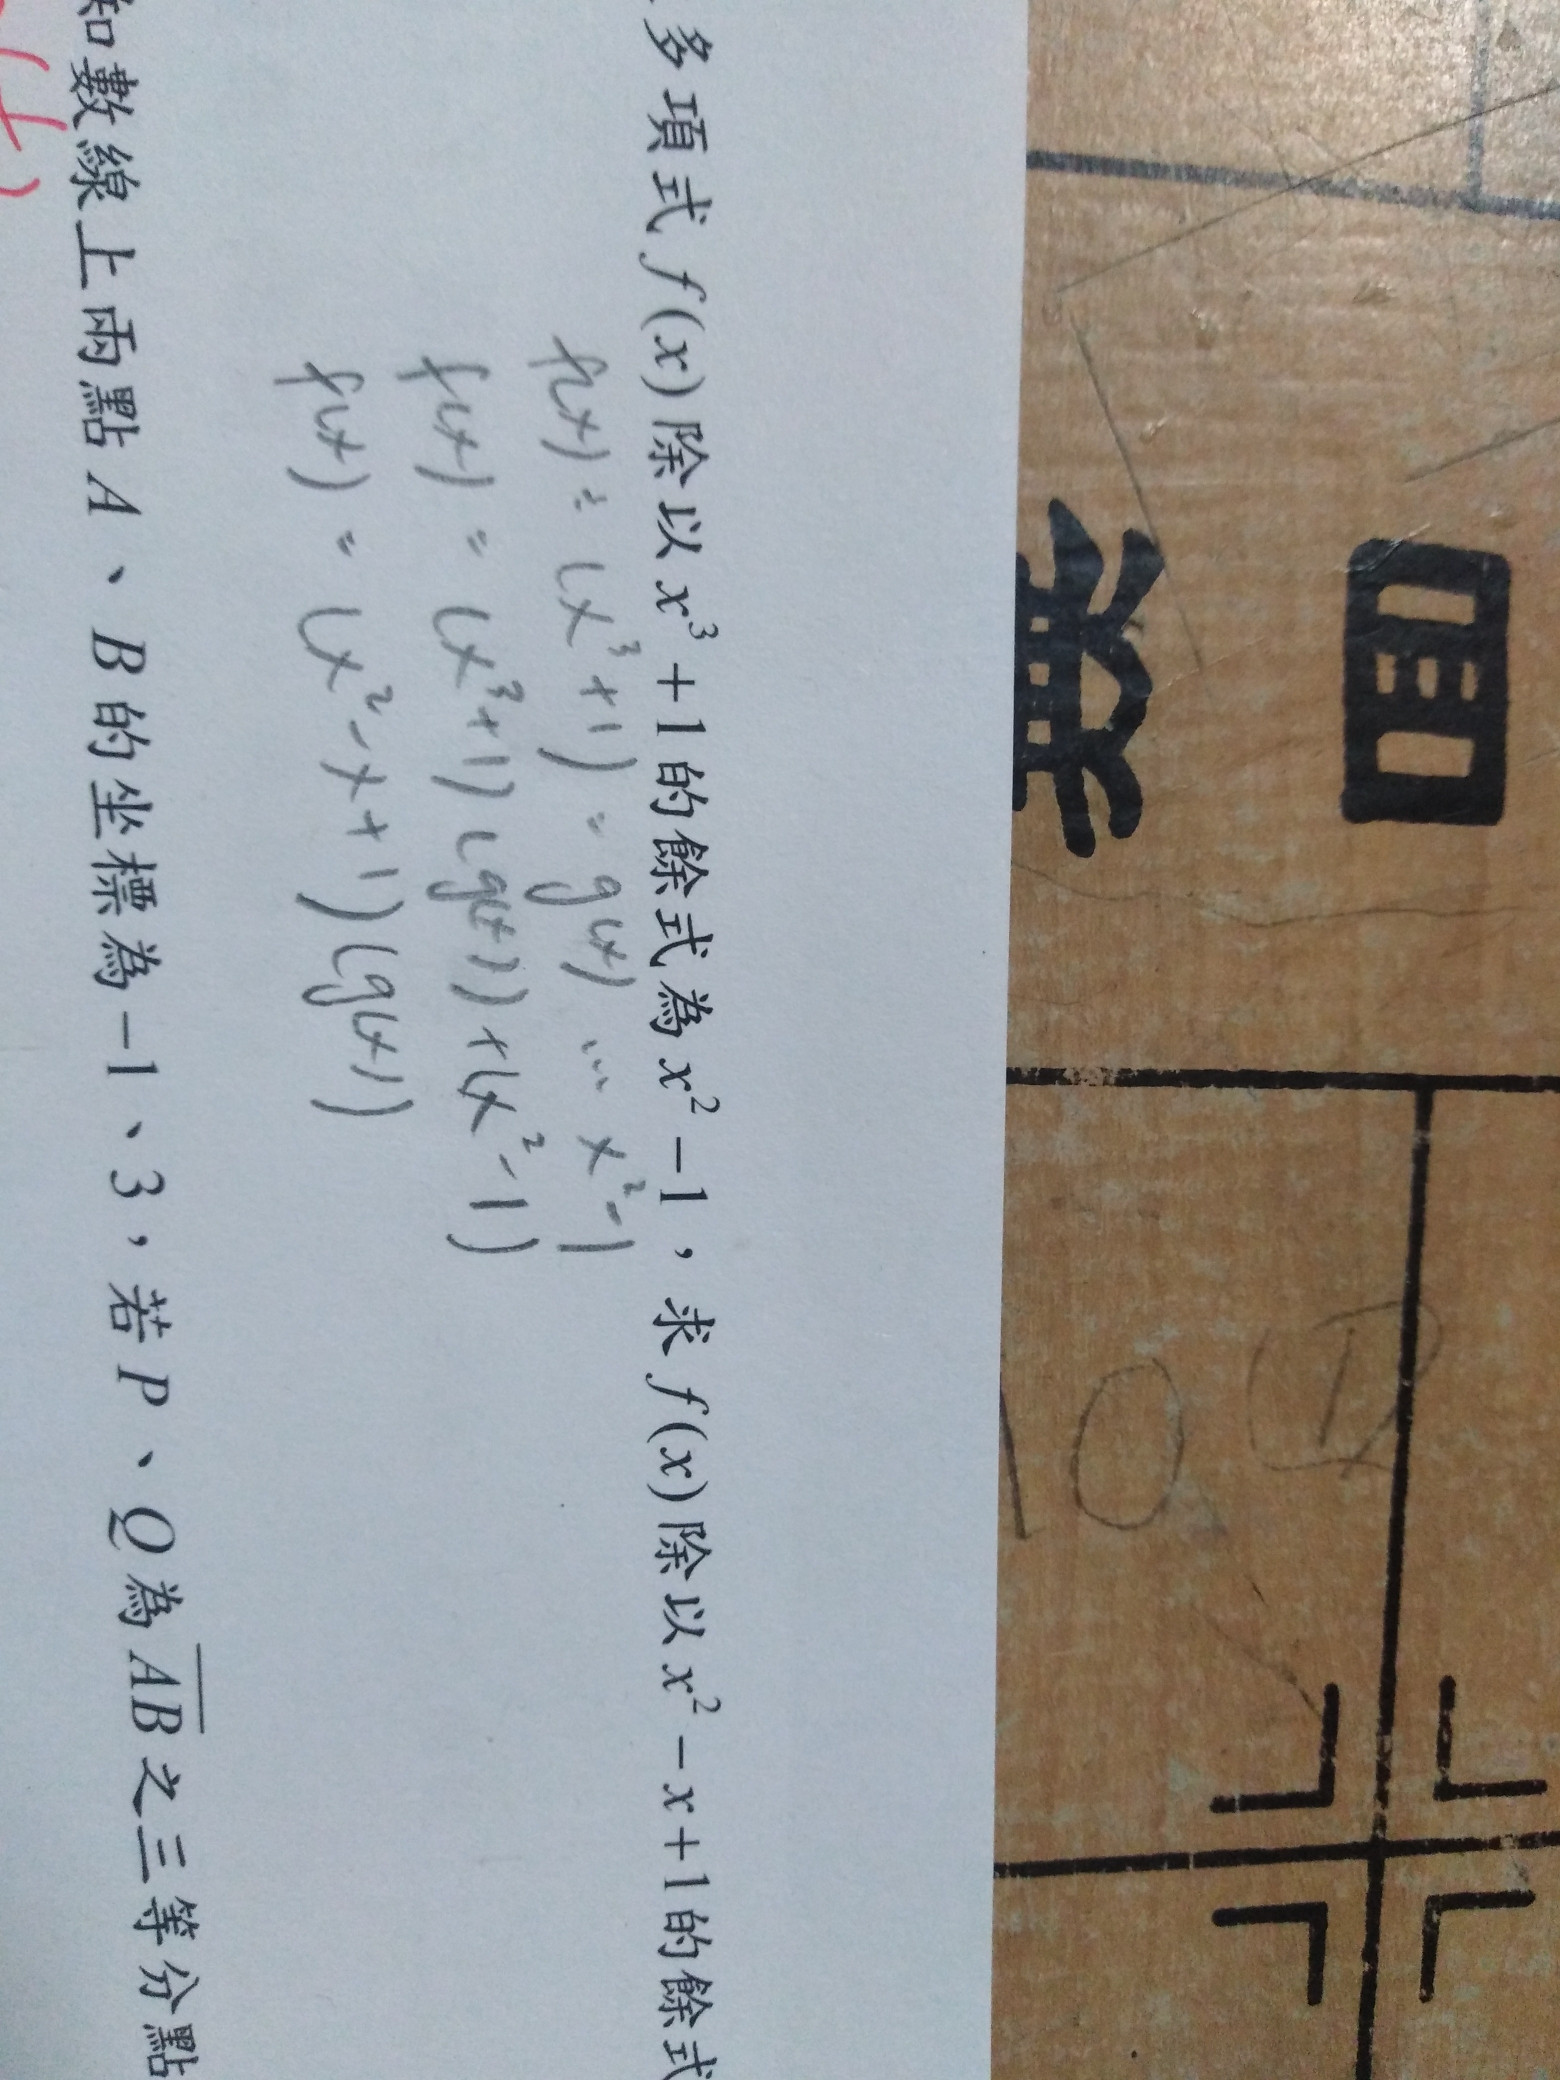 多項式 f(x) 除以 x³+1 的餘式為 x²-1，求 f(x) 除以 x²-x+1 的餘式
f(x) ÷ (x³+1) = g(x) … x²-1
f(x) = (x³+1)(g(x))+(x²-1)
f(x) = (x²-x+1)(g(x))
知數線上兩點 A、B 的坐標為 -1、3，若 P、Q 為 AB 之三等分點
10